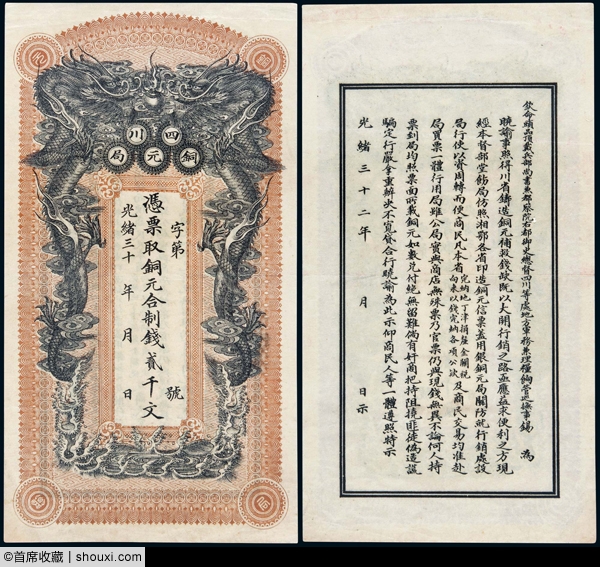 四川
銅元局
字第 號
憑票取銅元合制錢貳千文
光緒三十 年 月 日
欽命頭品頂戴兵部尚書都察院右都御史總督四川等處地方軍務兼理糧餉管巡撫事錫 為
曉諭事照得川省鑄造銅元補救錢缺既以大開行銷之路亟應益求便利之方現
經本督部堂飭局仿照湘鄂各省印造銅元信票蓋用銀銅元局關防就行銷處設
局行使以資周轉而便商民凡本省完納地丁津捐釐金關稅向來以錢完納各項公欵及商民交易均准赴
局買票一體行用局雖公局實與商店無殊票乃官票仍與現錢無異不論何人持
票到局均照票面所載銅元如數兌付絕無留難倘有奸商把持阻撓匪徒偽造誆
騙定行嚴拿重辦決不寬貸合行曉諭為此示仰商民人等一體遵照特示
光緒三十二年 月 日示
©首席收藏 | shouxi.com